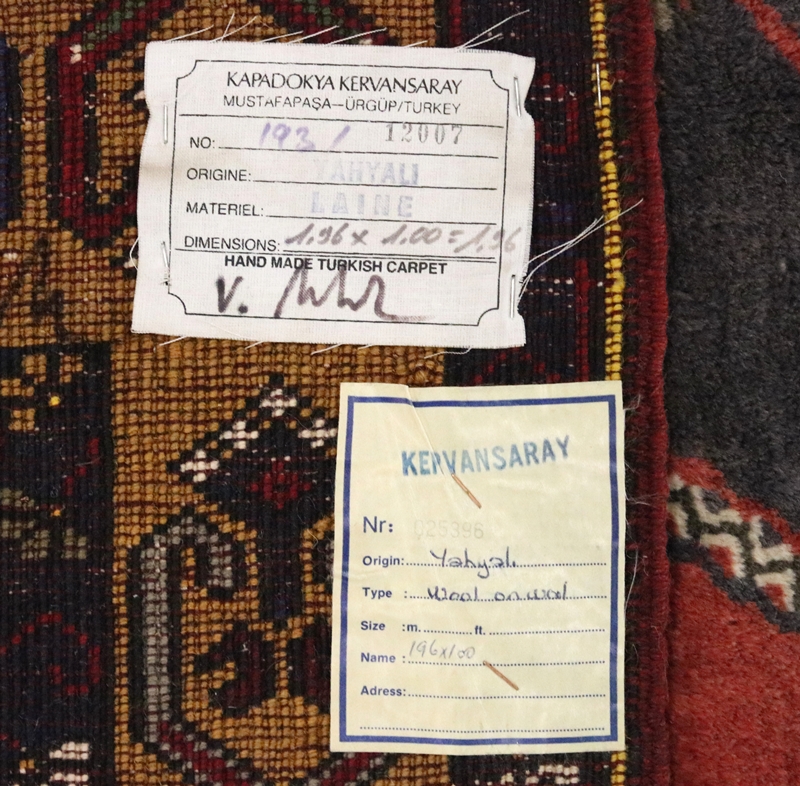 KAPADOKYA KERVANSARAY
MUSTAFAPAŞA–ÜRGÜP/TURKEY
NO: 193/ 12007
ORIGINE: YAHYALI
MATERIEL: LAINE
DIMENSIONS: 1.96 x 1.00 = 1.96
HAND MADE TURKISH CARPET
V.
KERVANSARAY
Nr: 025396
Origin: Yahyalı
Type Wool on wool
Size :m. ft.
Name : 196x100
Adress: